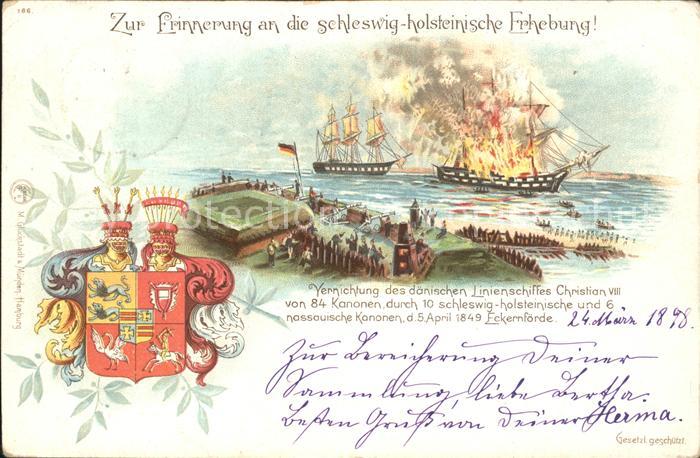 166.
Zur Erinnerung an die schleswig-holsteinische Erhebung!
M. Glückstadt & Münden, Hamburg
Vernichtung des dänischen Linienschiffes Christian VIII
von 84 Kanonen, durch 10 schleswig-holsteinische und 6
nassauische Kanonen, d. 5. April 1849 Eckernförde.
24. März 1898.
Zur Bereicherung Deiner
Sammlung, liebe Bertha.
Besten Gruß von Deiner Herma.
Gesetzl. geschützt.